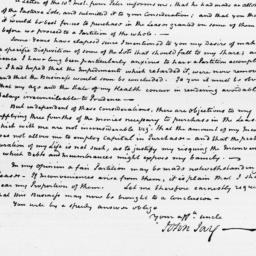 A letter of the 10th inst. from Peter informs me, that he had made an allot
of the Pasture Lots, and submitted it to your Consideration; and that you th
it would be best for us to purchase in the Leases granted on some of them
before we proceeded to a Partition of the whole. —
Some Years have elapsed since I mentioned to you my Desire of mak
a specific Disposition of some of the Lots that should fall to my Share;
I have long been particularly anxious to have a Partition accomp
I had hoped that the Impediments which retarded it, were now remov
and that the Business would soon be concluded. To you it must be obvi
that my age and the State of my Health concur in rendering avoidabl
delays irreconcileable to Prudence —
But independent of these Considerations, there are objections to my
supplying three fourths of the monies necessary to purchase in the Leas
which with me are not inconsiderable viz: that the amount of my Inco
does not allow me to employ Capital in Purchases — and that the prob
duration of my Life is not such, as to justify my risquing the Inconven
which Debts and Incumbrances might expose my Family. —
In my opinion a fair Partition may be made notwithstanding
Leases — If Inconveniences arise from them, it is plain that I sh
bear my Proportion of them. Let me therefore earnestly requ
that this Business may now be brought to a Conclusion —
You will by a speedy answer oblige
Your afft. uncle
John Jay —